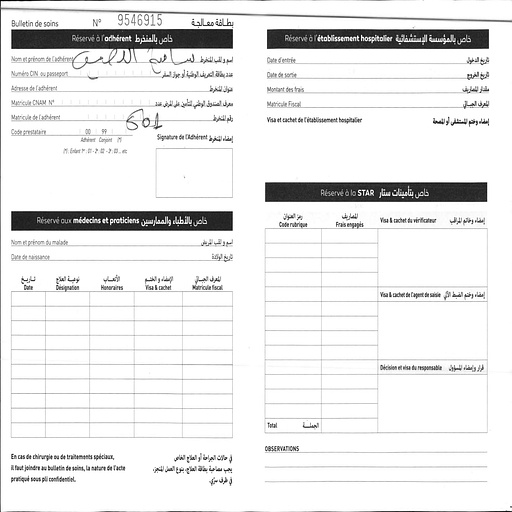 Bulletin de soins N° 9546915 بطاقة معالجة
Réservé à l'adhérent خاص بالمنخرط
Nom et prénom de l'adhérent سامية اسم و لقب المنخرط
Numéro CIN ou passeport عدد بطاقة التعريف الوطنية أو جواز السفر
Adresse de l'adhérent عنوان المنخرط
Matricule CNAM N° معرف الصندوق الوطني للتأمين على المرض عدد
Matricule de l'adhérent 601 رقم المنخرط
Code prestataire 00 99
Adhérent Conjoint (*)
(*). Enfant 1er : 01 - 2e : 02 - 3e : 03 ... etc
Signature de l'Adhérent إمضاء المنخرط
Réservé aux médecins et praticiens خاص بالأطباء والممارسين
Nom et prénom du malade اسم و لقب المريض
Date de naissance تاريخ الولادة
تاريخ نوعية العلاج الأتعاب الإمضاء و الختم المعرف الجبائي
Date Désignation Honoraires Visa & cachet Matricule fiscal
En cas de chirurgie ou de traitements spéciaux,
il faut joindre au bulletin de soins, la nature de l'acte
pratiqué sous pli confidentiel.
في حالات الجراحة أو العلاج الخاص
يجب مصاحبة بطاقة العلاج، بنوع العمل المنجز،
في ظرف سري.
Réservé à l'établissement hospitalier خاص بالمؤسسة الإستشفائية
Date d'entrée تاريخ الدخول
Date de sortie تاريخ الخروج
Montant des frais مقدار المصاريف
Matricule Fiscal المعرف الجبائي
Visa et cachet de l'établissement hospitalier إمضاء وختم المستشفى أو المصحة
Réservé à la STAR خاص بتأمينات ستار
رمز العنوان المصاريف Visa & cachet du vérificateur إمضاء وخاتم المراقب
Code rubrique Frais engagés
Visa & cachet de l'agent de saisie إمضاء وختم الضبط الآلي
Décision et visa du responsable قرار وإمضاء المسؤول
Total الجملة
OBSERVATIONS